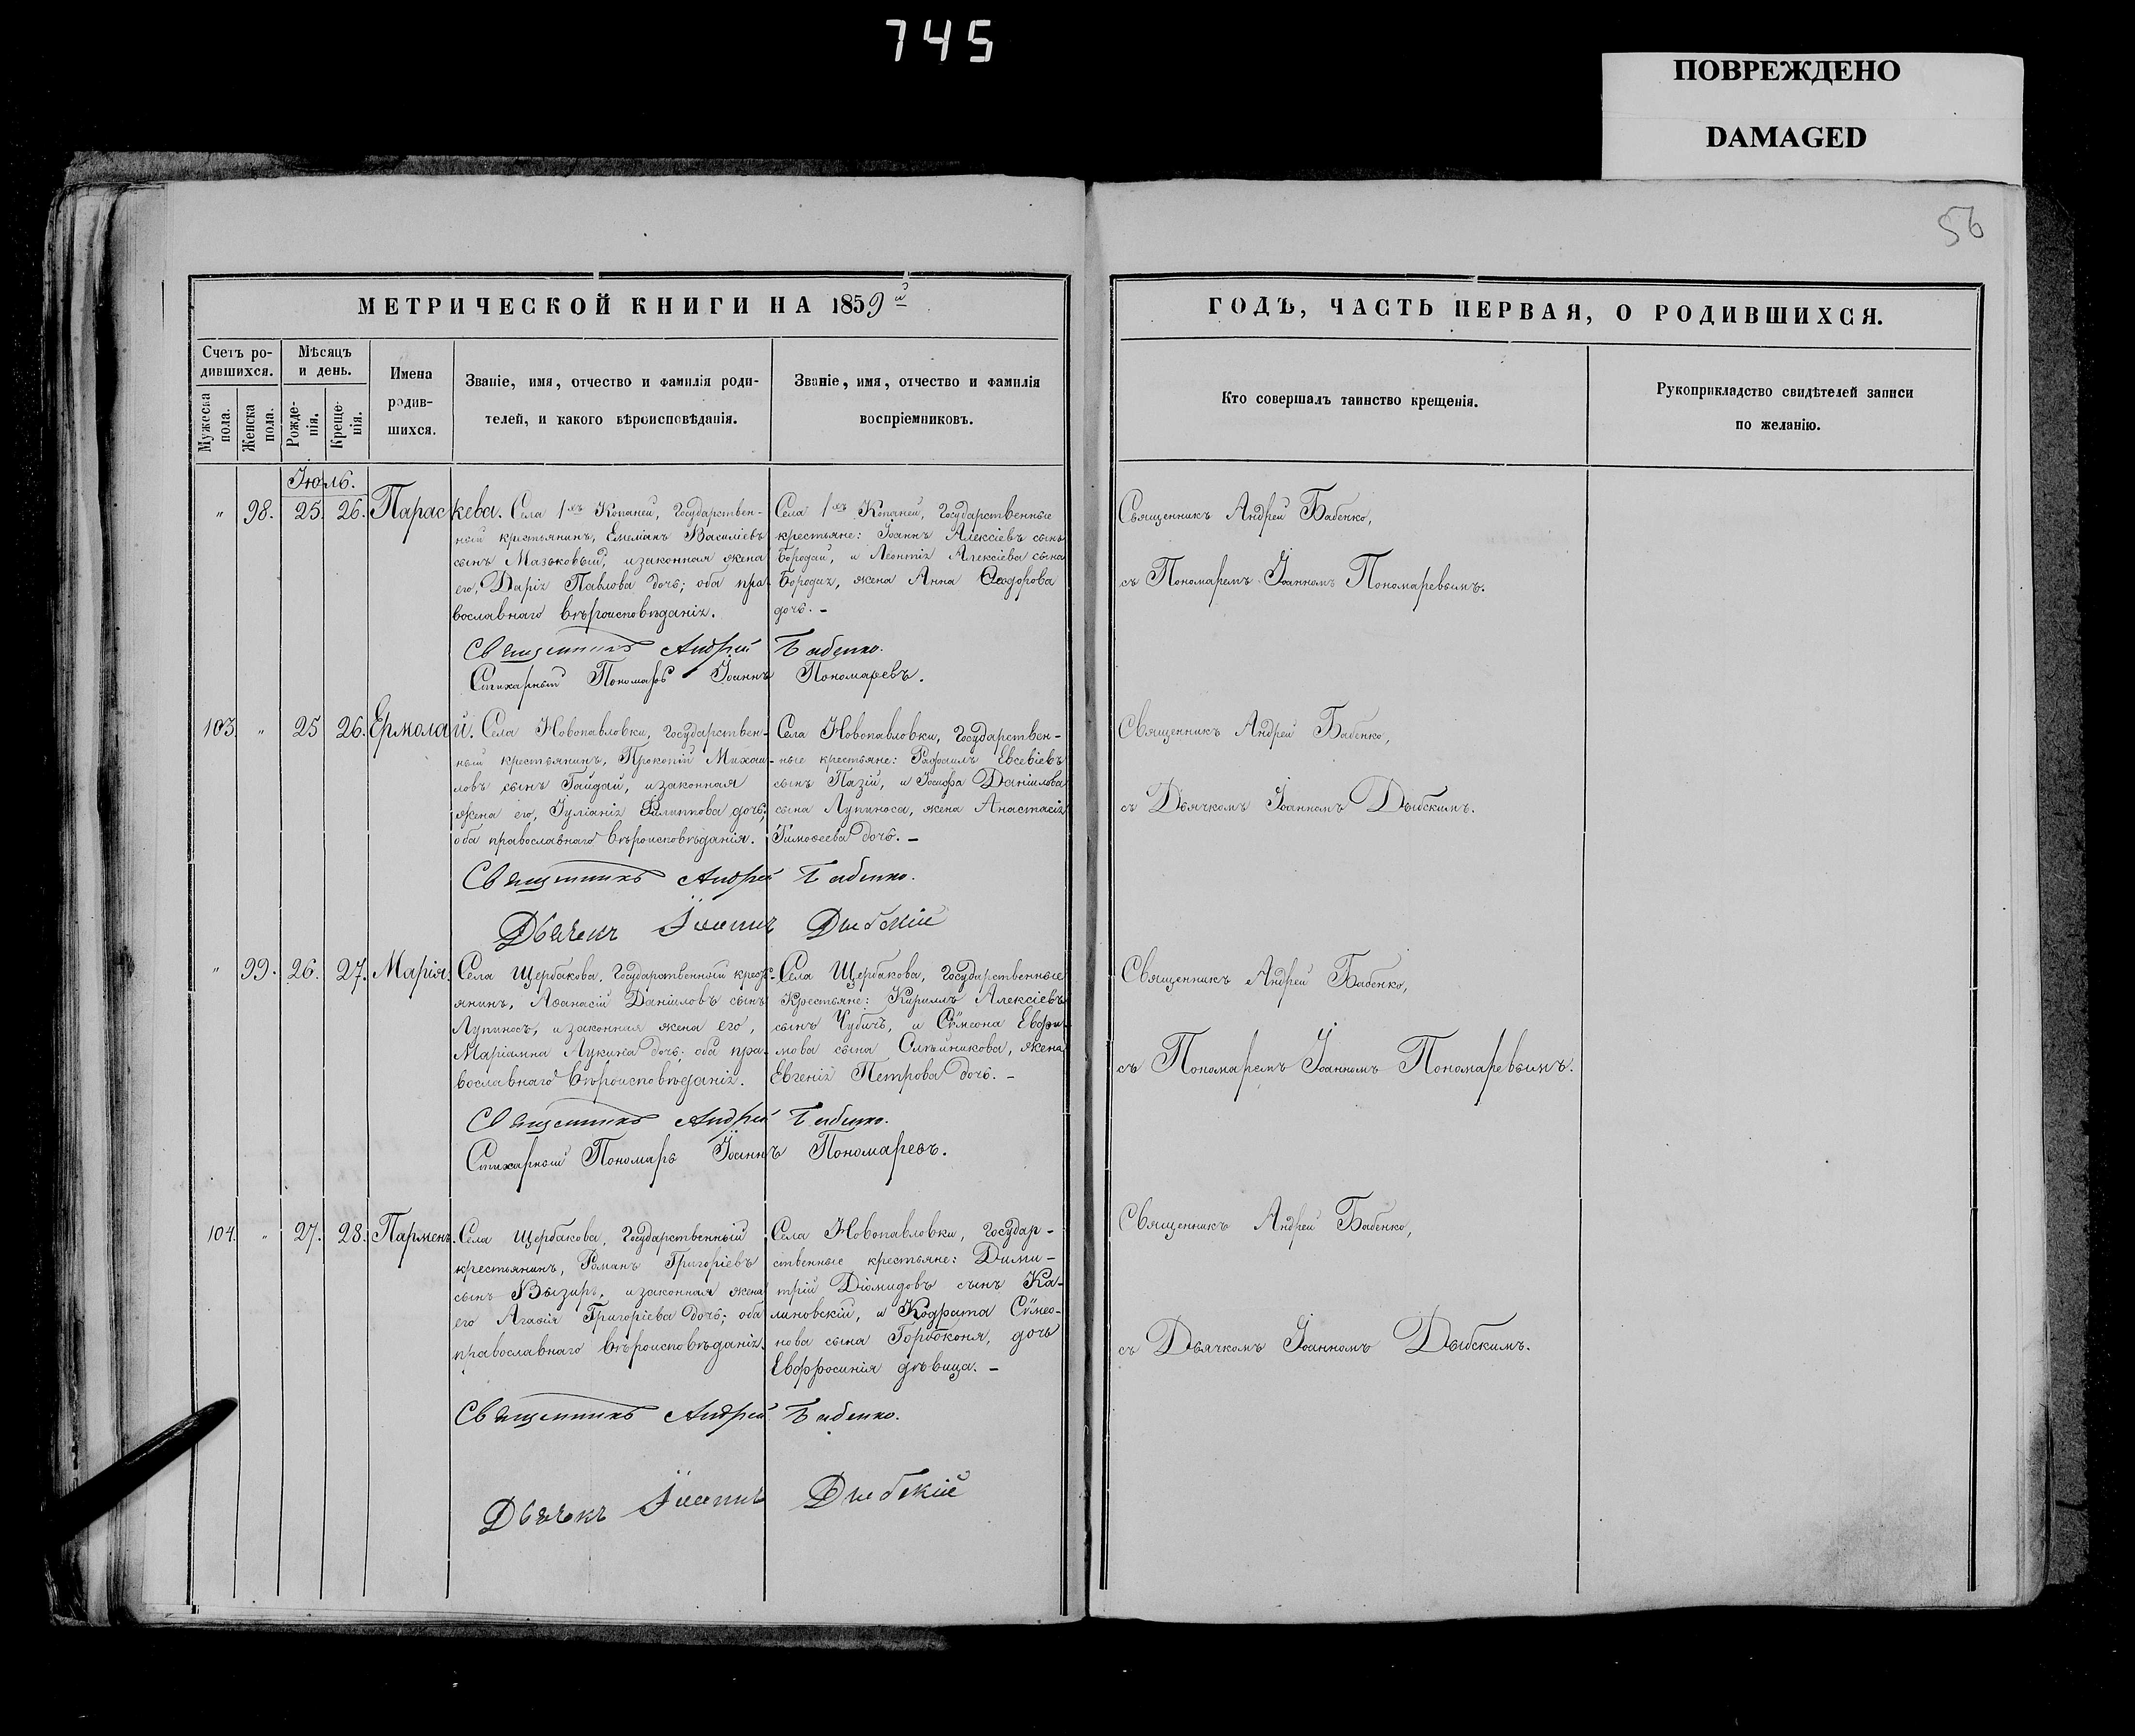 745
ПОВРЕЖДЕНО
DAMAGED
56
МЕТРИЧЕСКОЙ КНИГИ НА 1859й
Счетъ ро-
дившихся.
Мужеска
пола.
Женска
пола.
Мѣсяцъ
и день.
Рожде-
нія.
Креще-
нія.
Имена
родив-
шихся.
Званіе, имя, отчество и фамилія роди-
телей, и какого вѣроисповѣданія.
Званіе, имя, отчество и фамилія
воспріемниковъ.
Іюль.
" 98. 25. 26. Параскева.
Села 1хъ Копаней, Государствен-
ный крестьянинъ, Емеліанъ Василіевъ
сынъ Мазьковый, и законная жена
его, Дарія Павлова дочь; оба пра-
вославнаго вѣроисповѣданія.
Села 1хъ Копаней, Государственные
крестьяне: Іоаннъ Алексіевъ сынъ
Бородай, и Леонтія Алексіева сына
Бородая, жена Анна Ѳеодорова
дочь. –
Священникъ Андрей Бабенко.
Стихарный Пономарь Іоаннъ Пономаревъ.
103. " 25 26. Ермолай.
Села Новопавловки, Государствен-
ный крестьянинъ, Прокопій Михаи-
ловъ сынъ Гайдай, и законная
жена его, Іуліанія Филиппова дочь;
оба православнаго вѣроисповѣданія.
Села Новопавловки, Государствен-
ные крестьяне: Рафаилъ Евсевіевъ
сынъ Пазій, и Іосифа Даніилова
сына Лупиноса, жена Анастасія
Тимоѳеева дочь. –
Священникъ Андрей Бабенко.
Дьячекъ Іоаннъ Дыбскій
" 99. 26. 27. Марія.
Села Щербакова, Государственный крест-
янинъ, Аѳанасій Даніиловъ сынъ
Лупиносъ, и законная жена его,
Маріамна Лукина дочь; оба пра-
вославнаго вѣроисповѣданія.
Села Щербакова, Государственные
Крестьяне: Кириллъ Алексіевъ
сынъ Чубичъ, и Сѵмеона Евфи-
мова сына Олѣйникова, жена
Евгенія Петрова дочь. –
Священникъ Андрей Бабенко.
Стихарный Пономарь Іоаннъ Пономаревъ.
104. " 27. 28. Парменъ.
Села Щербакова, Государственный
крестьянинъ, Романъ Григоріевъ
сынъ Вызирь, и законная жена
его Агафія Григоріева дочь; оба
православнаго вѣроисповѣданія.
Села Новопавловки, Государ-
ственные крестьяне: Дими-
трій Діомидовъ сынъ Ка-
линовскій, и Кодрата Сѵмео-
нова сына Горбоконя, дочь
Евфросинія дѣвица. –
Священникъ Андрей Бабенко.
Дьячекъ Іоаннъ Дыбскій
ГОДЪ, ЧАСТЬ ПЕРВАЯ, О РОДИВШИХСЯ.
Кто совершалъ таинство крещенія.
Рукоприкладство свидѣтелей записи
по желанію.
Священникъ Андрей Бабенко,
съ Пономаремъ Іоанномъ Пономаревымъ.
Священникъ Андрей Бабенко,
съ Дьячкомъ Іоанномъ Дыбскимъ.
Священникъ Андрей Бабенко,
съ Пономаремъ Іоанномъ Пономаревымъ.
Священникъ Андрей Бабенко,
съ Дьячкомъ Іоанномъ Дыбскимъ.